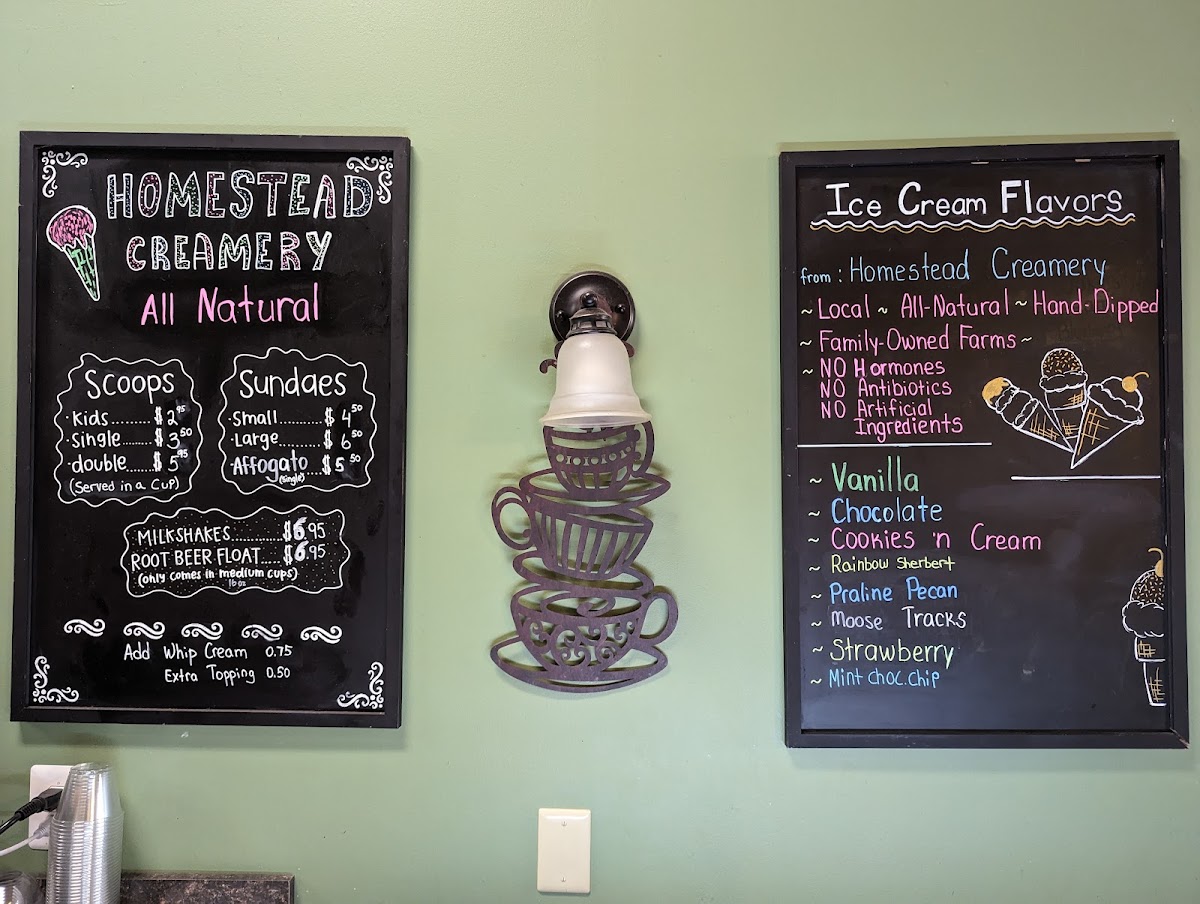 HOMESTEAD
CREAMERY
All Natural
Scoops
·Kids.......$2.95
·Single......$3.50
·double.....$5.95
(Served in a Cup)
Sundaes
·Small.........$4.50
·Large........$6.50
·Affogato...$5.50
(single)
MILKSHAKES..........$6.95
ROOT BEER FLOAT.....$6.95
(only comes in medium cups)
16 oz
Add Whip Cream 0.75
Extra Topping 0.50
Ice Cream Flavors
from: Homestead Creamery
~ Local ~ All-Natural ~ Hand-Dipped
~ Family-Owned Farms ~
~ NO Hormones
NO Antibiotics
NO Artificial
Ingredients
~ Vanilla
~ Chocolate
~ Cookies 'n Cream
~ Rainbow Sherbert
~ Praline Pecan
~ Moose Tracks
~ Strawberry
~ Mint choc.chip